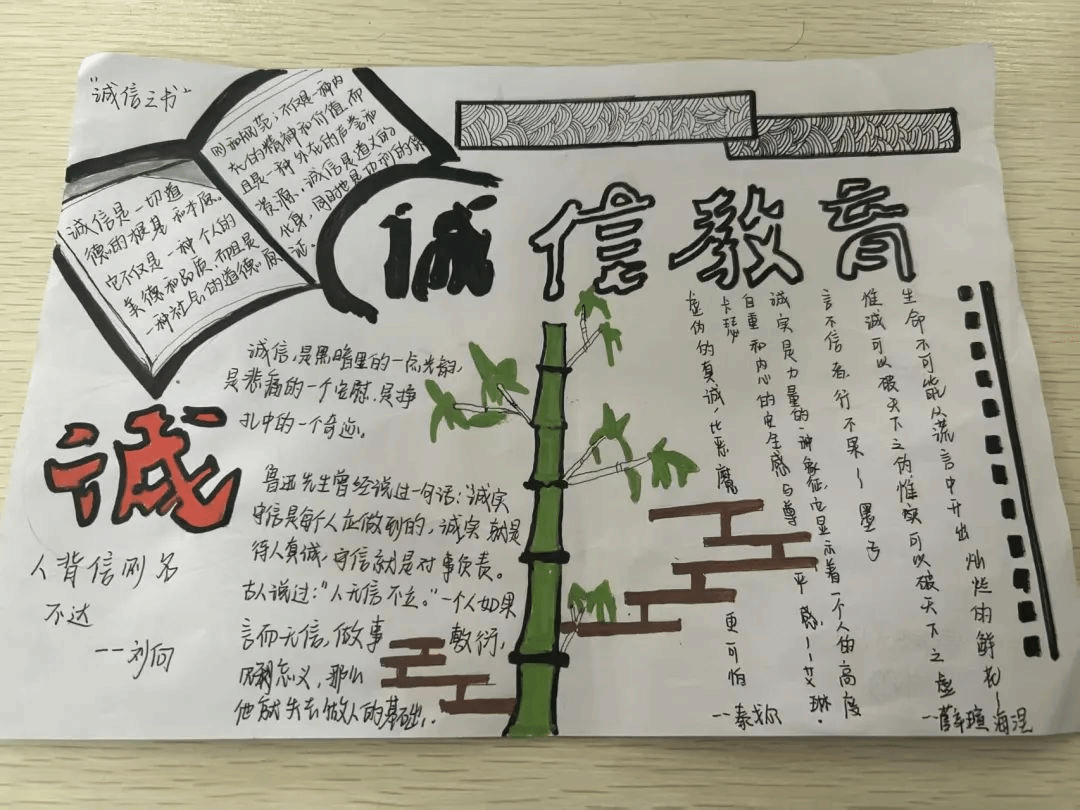 "诚信之书"
诚信是一切道
德的根基和本原。
它不仅是一种个人的
美德和品质,而且是
一种社会的道德原
则和规范;不仅是一种内
在的精神和价值,而
且是一种外在的声誉和
资源。诚信是道义的
化身,同时也是功利的保
证。
诚信教育
诚信,是黑暗里的一点光韵,
是悲痛的一个安慰,是挣
扎中的一个奇迹。
诚
人背信则名
不达
--刘向
鲁迅先生曾经说过一句话:"诚实
守信是每个人应做到的,诚实就是
待人真诚,守信就是对事负责。
古人说过:"人无信不立。"一个人如果
言而无信,做事敷衍,
见利忘义,那么
他就失去做人的基础。
生命不可能从谎言中开出灿烂的鲜花—海涅
惟诚可以破天下之伪惟实可以破天下之虚
--薛瑄
言不信者行不果—墨子
诚实是力量的一种象征,它显示着一个人的高度
自重和内心的安全感与尊严感,--艾琳·
卡瑟
虚伪的真诚,比恶魔更可怕
--泰戈尔